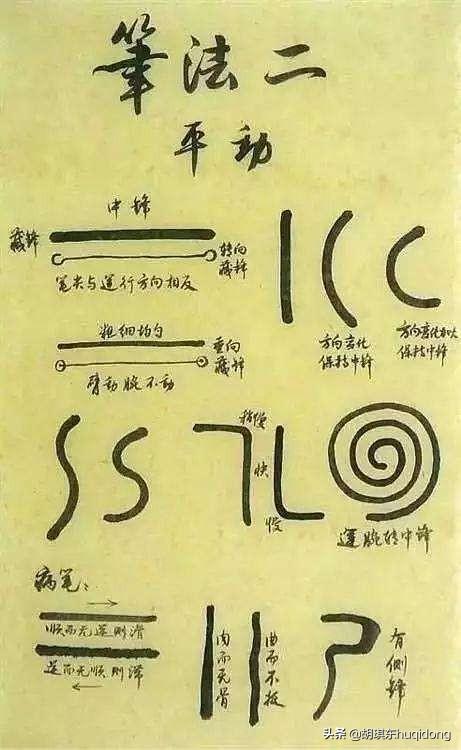 筆法二
平動
中鋒
藏鋒
转向
藏鋒
笔尖与運行方向相反
粗细均匀
垂向
藏鋒
臂动腕不动
方向变化
保持中鋒
方向变化加大
保持中鋒
稍慢
快
運腕转中鋒
病笔：
順而无逆则滑
逆而无順则滞
肉而无骨
曲而不挺
有侧鋒
头条 @胡琪东huqidong